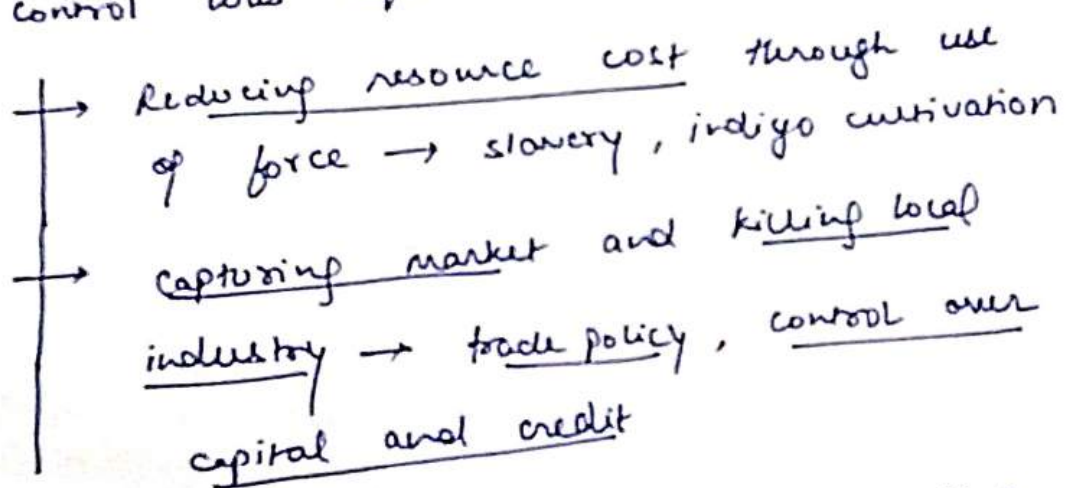 control
→ Reducing resource cost through use
of force → slavery, indigo cultivation
→ capturing market and killing local
industry → trade policy, control over
capital and credit